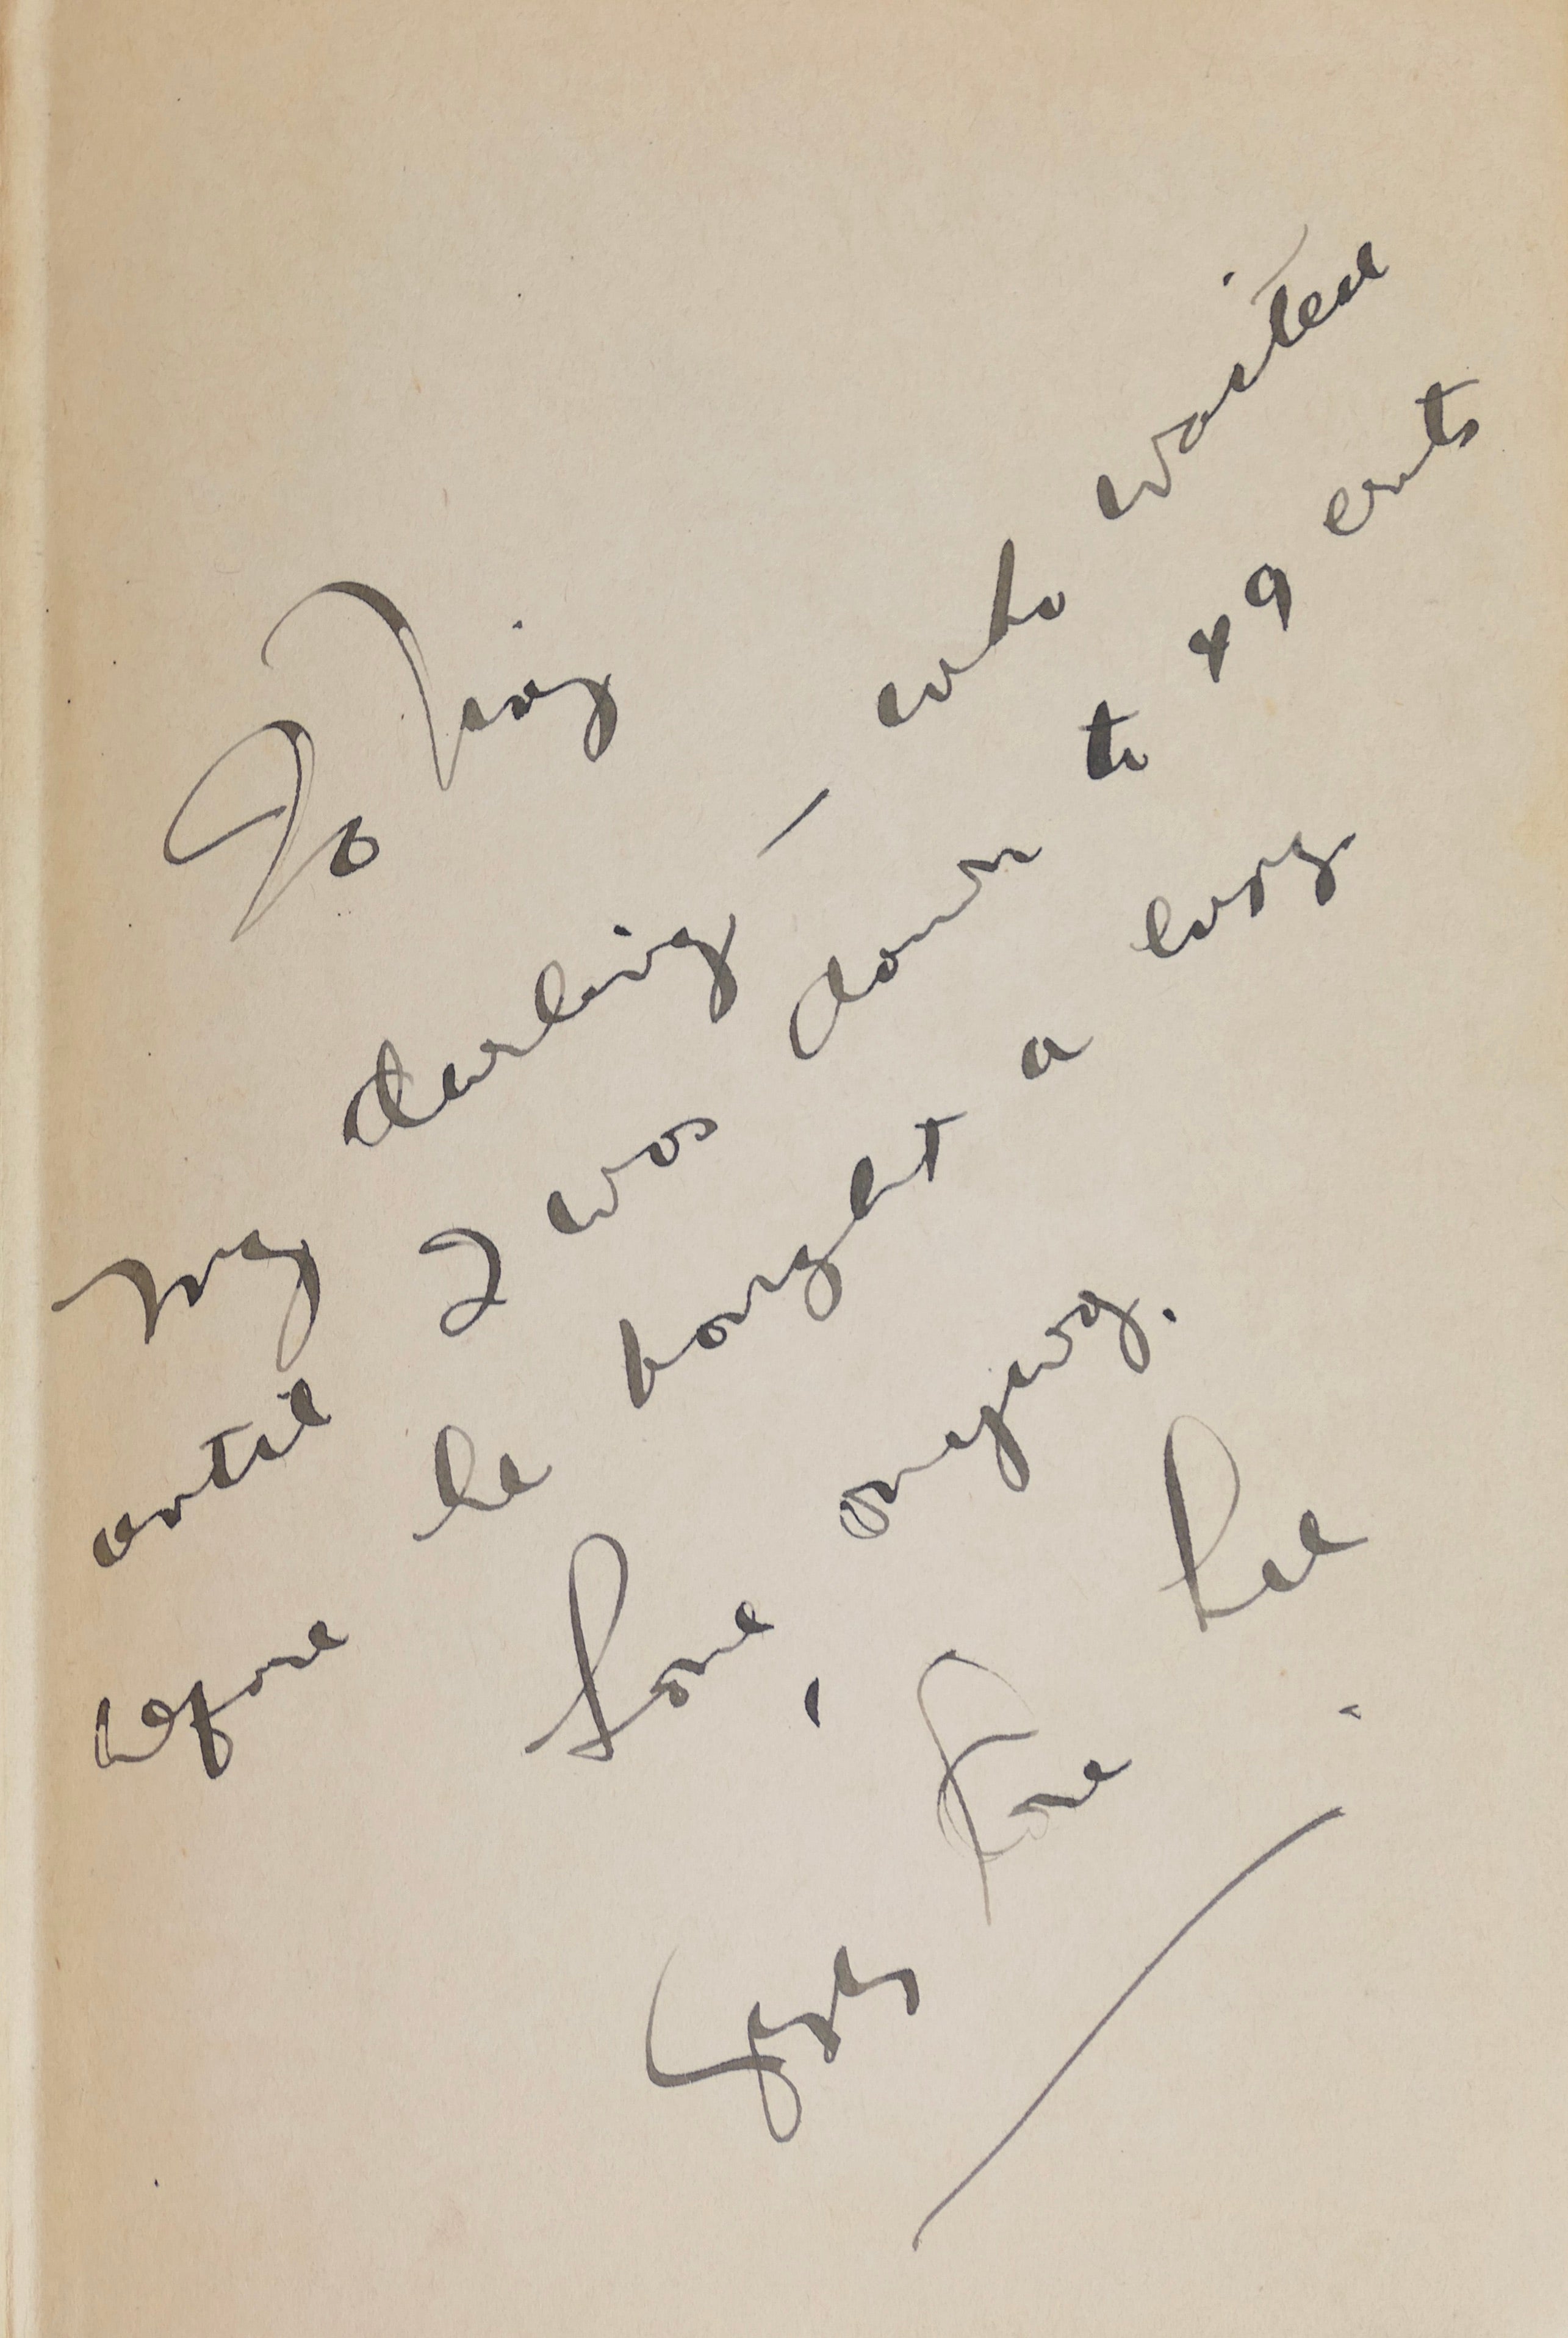 To
My darling — who waited
until I was down to 49 cents
before he bought a copy.
Love, anyway.
Gypsy Rose Lee